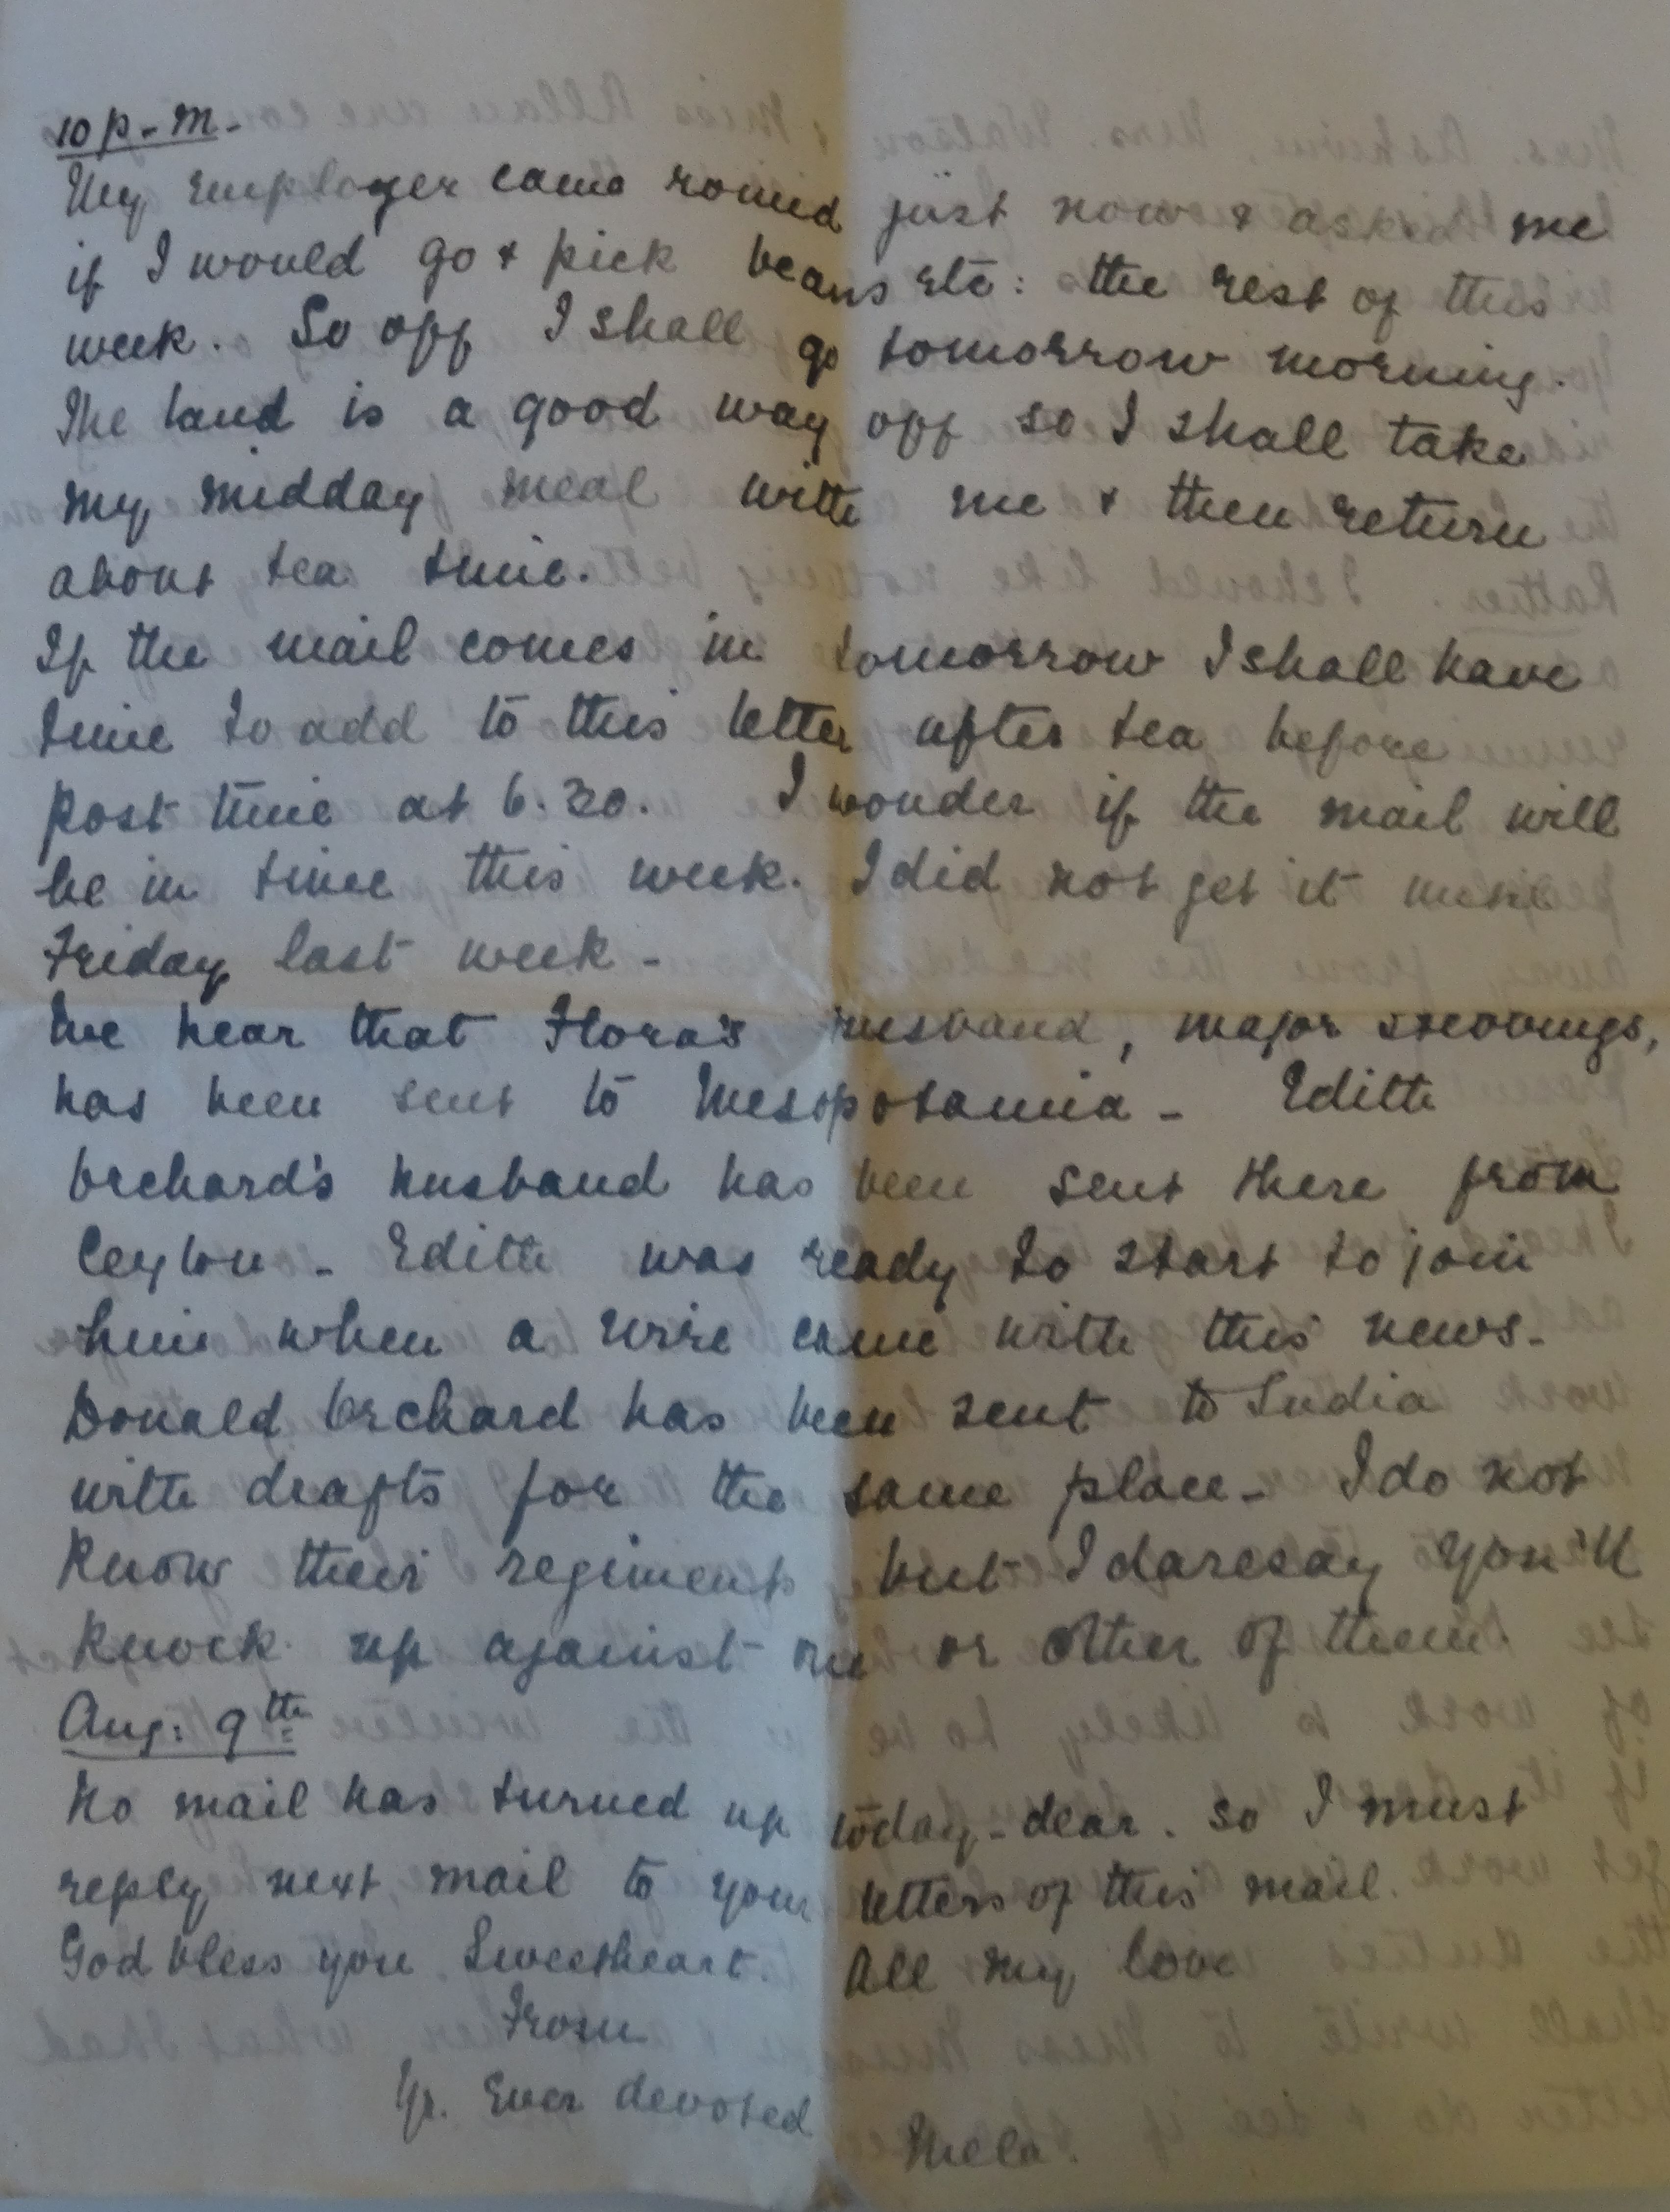 10 p.m.
My employer came round just now & asked me
if I would go & pick beans etc: the rest of this
week. So off I shall go tomorrow morning.
The land is a good way off so I shall take
my midday meal with me & then return
about tea time.
If the mail comes in tomorrow I shall have
time to add to this letter after tea before
post time at 6.30. I wonder if the mail will
be in time this week. I did not get it until
Friday last week -
We hear that Flora's husband, Major
has been sent to Mesopotamia - Edith
Orchard's husband has been sent there from
Ceylon - Edith was ready to start to join
him when a wire came with this news -
Donald Orchard has been sent to India
with drafts for the same place - I do not
know their regiments but I daresay you'll
knock up against one or other of them.
Aug: 9th
No mail has turned up today - dear. So I must
reply next mail to your letters of this mail.
God bless you Sweetheart. All my love
From
Yr. Ever devoted